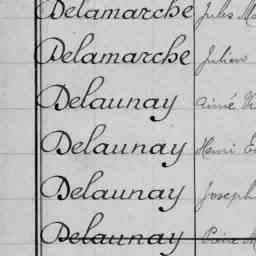 Delamarche Jules
Delamarche Julien
Delaunay Aimé
Delaunay Henri
Delaunay Joseph
Delaunay Pierre